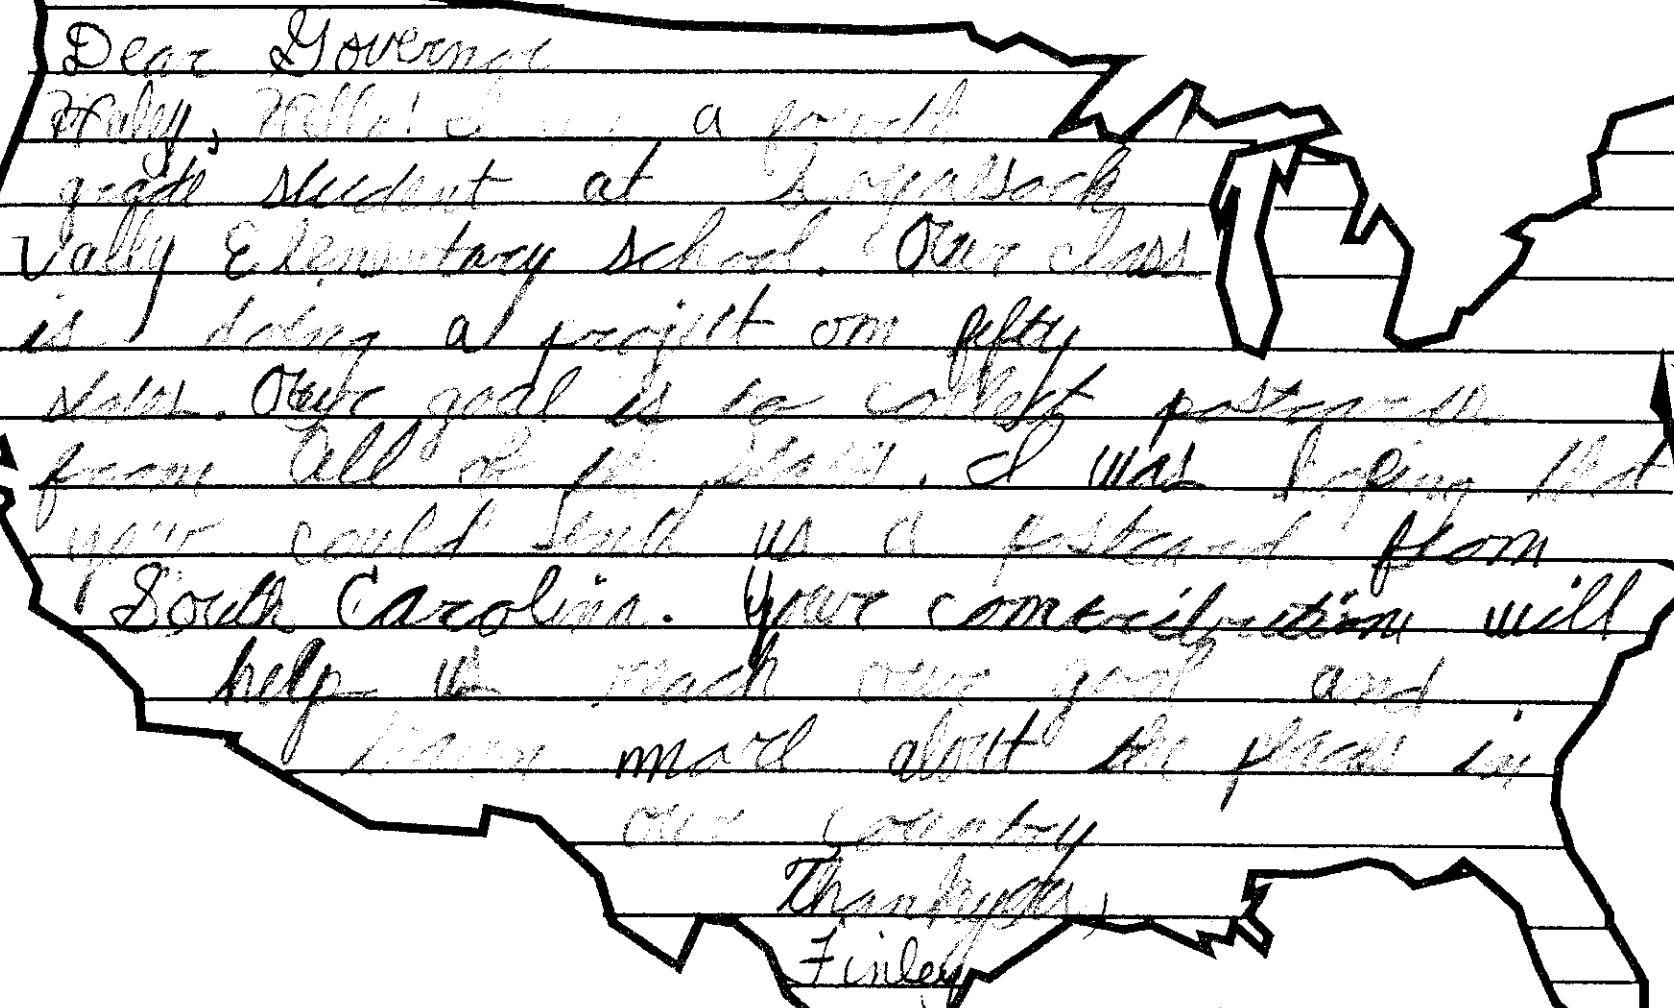 Dear Governor
Haley, Hello! I am a fourth
grade student at Loyalsock
Vally Elementary school. Our class
is doing a project on fifty
states. Our goal is to collect postcards
from all of the states. I was hoping that
you could send us a postcard from
South Carolina. Your contribution will
help us reach our goal and
learn more about the places in
our country
Thankyou,
Finley